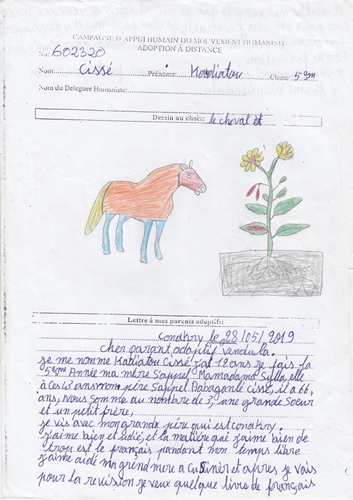 CAMPAGNE D'APPUI HUMAIN DU MOUVEMENT HUMANISTE
ADOPTION À DISTANCE
No: 602320
Nom: Cissé Prénoms: Kadiatou Classe 5em
Nom du Délegué Humaniste:
Dessin au choix: le cheval et
Lettre à mes parents adoptifs:
Conakry le 28/05/2019
Cher parant adoptif vendula.
Je me nomme Kadiatou Cissé j'ai 12 ans je fais la
5em Année ma mère s'appel Mamadama Sylla elle
à ces 43 ans mon père s'appel Babagante Cissé, il a 66,
ans, Nous somme au nombre de 3 une grande Soeur
et un petit frère,
je vis avec mon grande père qui est conakry.
j'aime bien et udié, et la matière que j'aime bien de
trop est le français pandant mon temps libre
j'aime aidé ma grend mère a Cuisinér et apres je vais
pour la revision je veux quelque livre de français